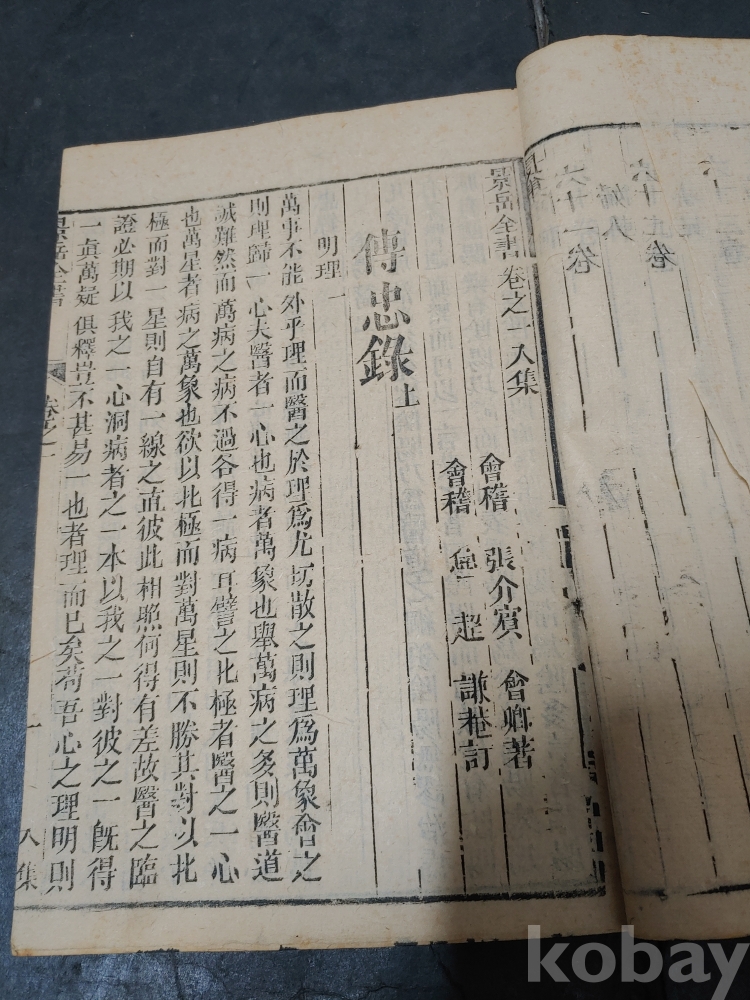 景岳全書卷之一入集
會稽 張介賓 會卿著
會稽 魯超 謙菴訂
傳忠錄上
明理一
萬事不能外乎理而醫之於理爲尤切散之則理爲萬象會之
則理歸一心夫醫者一心也病者萬象也舉萬病之多則醫道
誠難然而萬病之病不過各得一病耳譬之北極者醫之一心
也萬星者病之萬象也欲以北極而對萬星則不勝其對以北
極而對一星則自有一線之直彼此相照何得有差故醫之臨
證必期以我之一心洞病者之一本以我之一對彼之一既得
一眞萬疑俱釋豈不甚易一也者理而已矣苟吾心之理明則
景岳全書
卷之一
一
入集
六十一卷
婦人
六十二卷
kobay